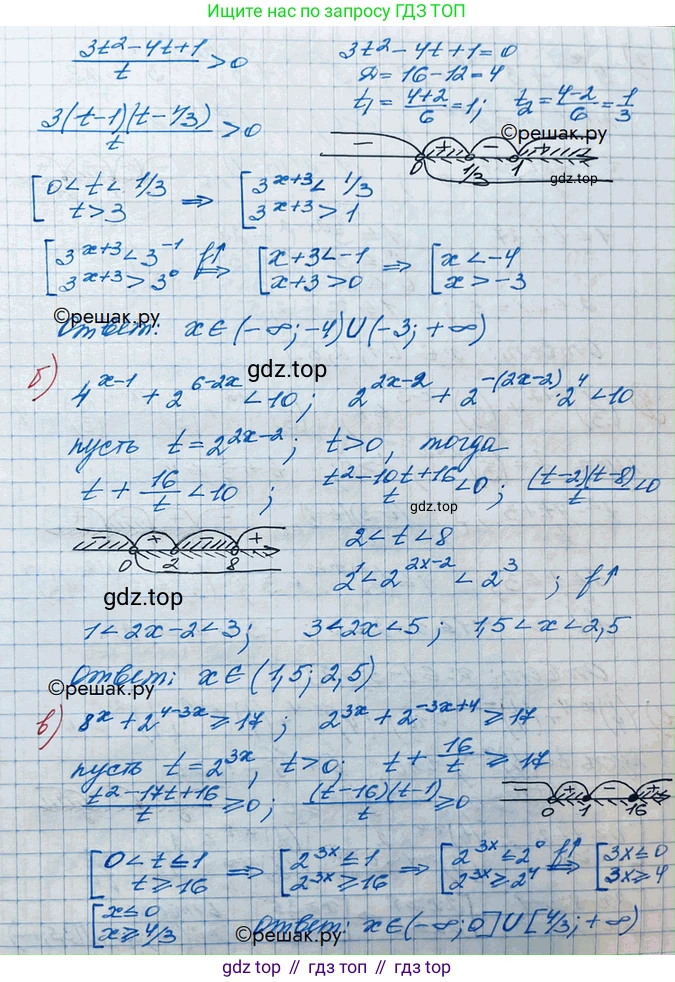 Ищите по запросу ГДЗ ТОП
(3t²-4t+1)/t > 0    3t²-4t+1=0
Д=16-12=4
3(t-1)(t-1/3)/t > 0    t₁=(4+2)/6=1; t₂=(4-2)/6=1/3
©reшак.ру
- + - +
0 1/3 1
gdz.top
[0<t<1/3 ; t>3 ⇒ [3^(x+3)<1/3 ; 3^(x+3)>1
[3^(x+3)<3^(-1) ; 3^(x+3)>3^0 f↑⇒ [x+3<-1 ; x+3>0 ⇒ [x<-4 ; x>-3
©reшак.ру
Ответ: x∈(-∞;-4)∪(-3;+∞)
б)
gdz.top
4^(x-1) + 2^(6-2x) <10; 2^(2x-2) + 2^(-(2x-2))·2^4 <10
пусть t=2^(2x-2); t>0, тогда
t + 16/t <10 ; (t²-10t+16)/t <0; (t-2)(t-8)/t <0
gdz.top
- + - +
0 2 8
2<t<8
2^1<2^(2x-2)<2^3 ; f↑
gdz.top
1<2x-2<3; 3<2x<5; 1,5<x<2,5
Ответ: x∈(1,5; 2,5)
©reшак.ру
в) 8^x+2^(4-3x)≥17 ; 2^(3x)+2^(-3x+4)≥17
пусть t=2^(3x), t>0; t+16/t ≥17
(t²-17t+16)/t ≥0; (t-16)(t-1)/t ≥0
- + - +
0 1 16
[0<t≤1 ; t≥16 ⇒ [2^(3x)≤1 ; 2^(3x)≥16 ⇒ [2^(3x)≤2^0 ; 2^(3x)≥2^4 f↑⇒ [3x≤0 ; 3x≥4
[x≤0 ; x≥4/3    Ответ: x∈(-∞;0]∪[4/3;+∞)
©reшак.ру
gdz top // гдз топ // gdz.top